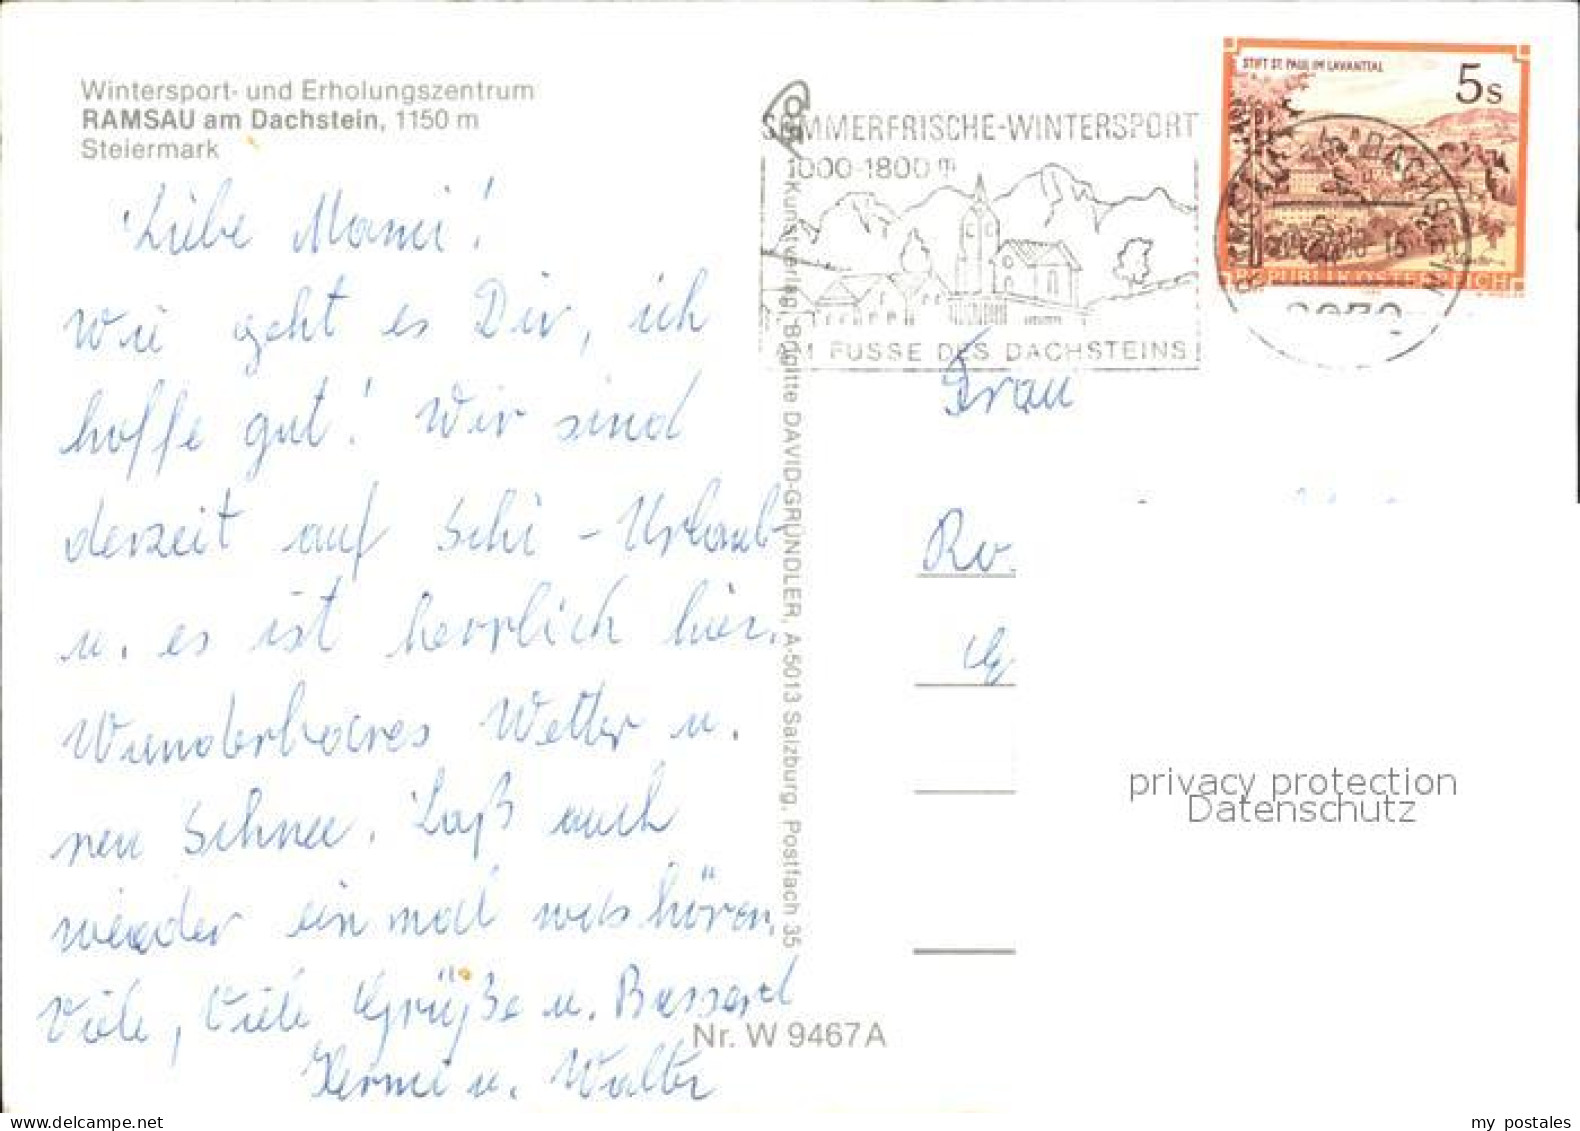 Wintersport- und Erholungszentrum
RAMSAU am Dachstein, 1150 m
Steiermark
Liebe Mami!
Wie geht es Dir, ich
hoffe gut! Wir sind
derzeit auf Schi - Urlaub
u. es ist herrlich hier.
Wunderbares Wetter u.
neu Schnee. Laß auch
wieder einmal was hören,
Viele, Viele Grüße u. Busserl
Hermi u. Walter
Nr. W 9467 A
Kunstverlag Brigitte DAVID-GRÜNDLER, A-5013 Salzburg, Postfach 35
SOMMERFRISCHE-WINTERSPORT
1000-1800 m
AM FUSSE DES DACHSTEINS
STIFT ST. PAUL IM LAVANTTAL
5 S
REPUBLIK ÖSTERREICH
RAMSAU AM DACHSTEIN
Frau
Ro.
privacy protection
Datenschutz
my postales
delcampe.net